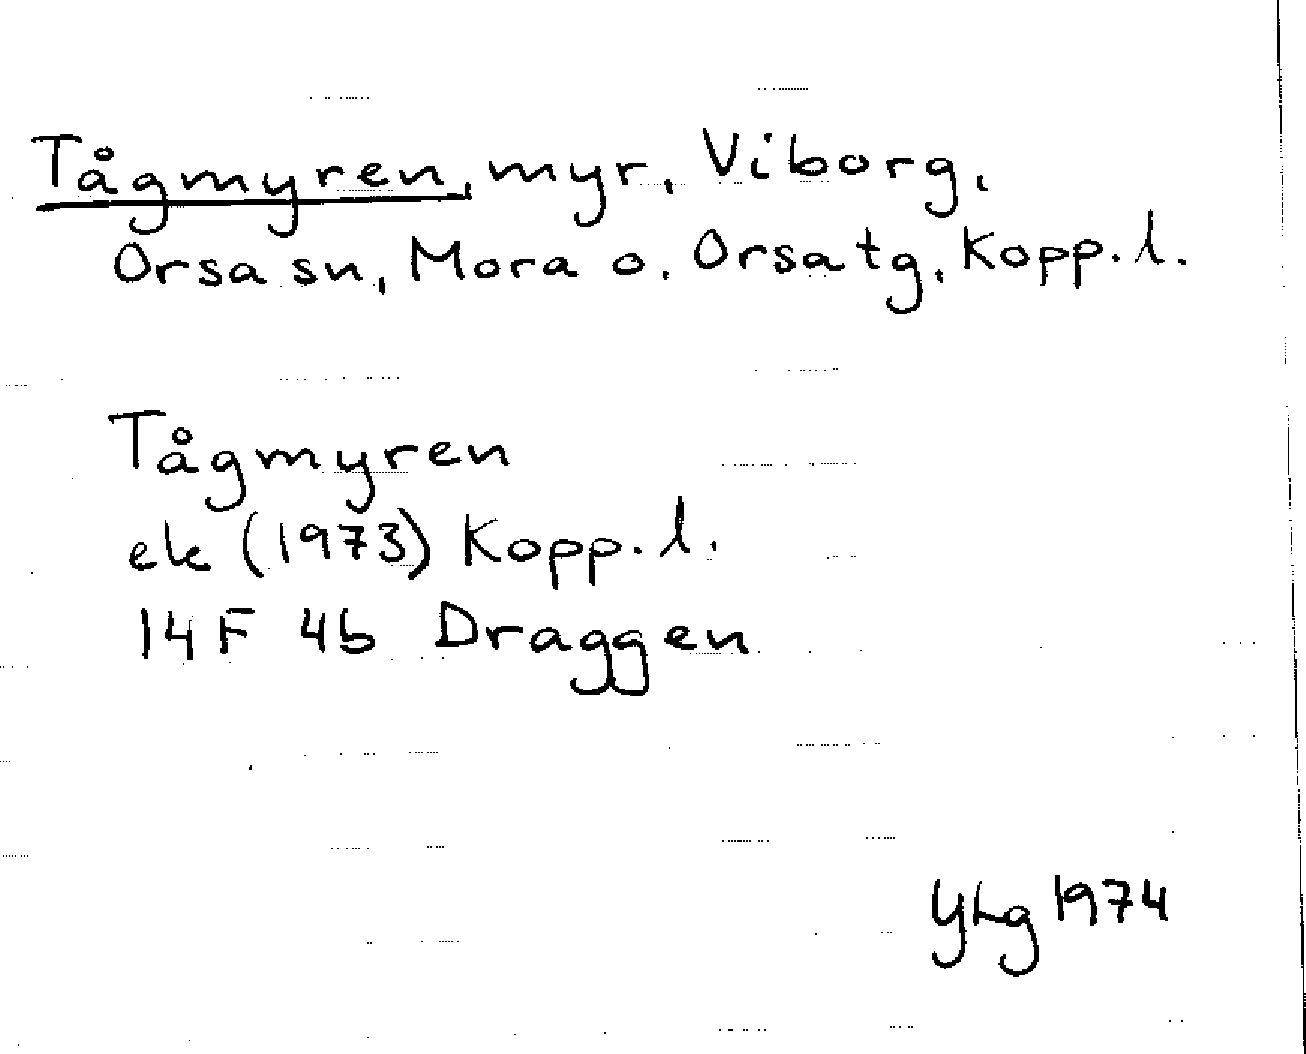 Tågmyren, myr, Viborg,
Orsa sn, Mora o. Orsa tg, Kopp. l.
Tågmyren
ek (1973) Kopp. l.
14 F 4b Draggen
YLg 1974